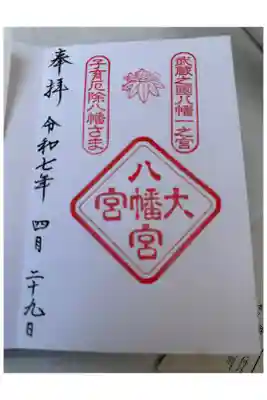 武蔵之國八幡一之宮
大宮八幡宮
子育厄除八幡さま
奉拝 令和七年 四月 二十九日